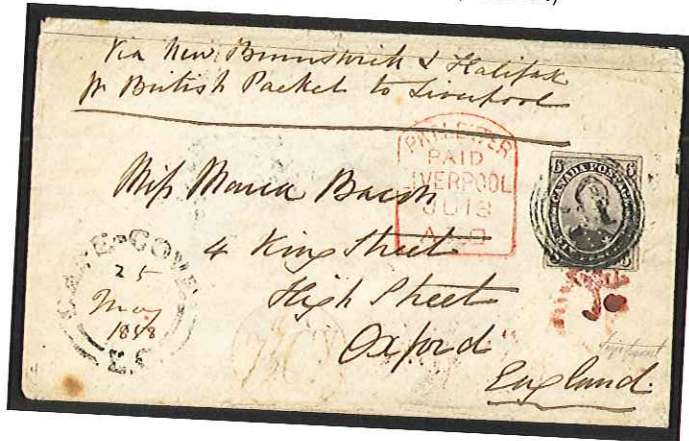 Via New Brunswick & Halifax
pr British Packet to Liverpool
PKT. LETTER
PAID
LIVERPOOL
JU 13
CANADA POSTAGE
Miss Maria
4 King Street
High Street
Oxford
England
COVE
25
May
1858